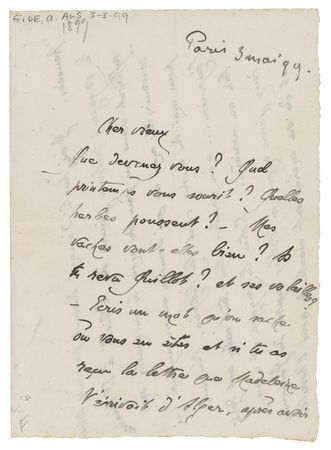 GIDE, A. ALS 3-3-99
1899
Paris 3 mai 99.
Cher vieux
Que devenez vous ? Quel
printemps vous sourit ? Quelles
herbes poussent ? — Mes
vaches vont-elles bien ? As
tu revu Quillot ? et ses volailles ?
— Ecris un mot qu'on sache
où vous en êtes et si tu as
reçu la lettre que Madeleine
t'écrivait d'Alger, après avoir